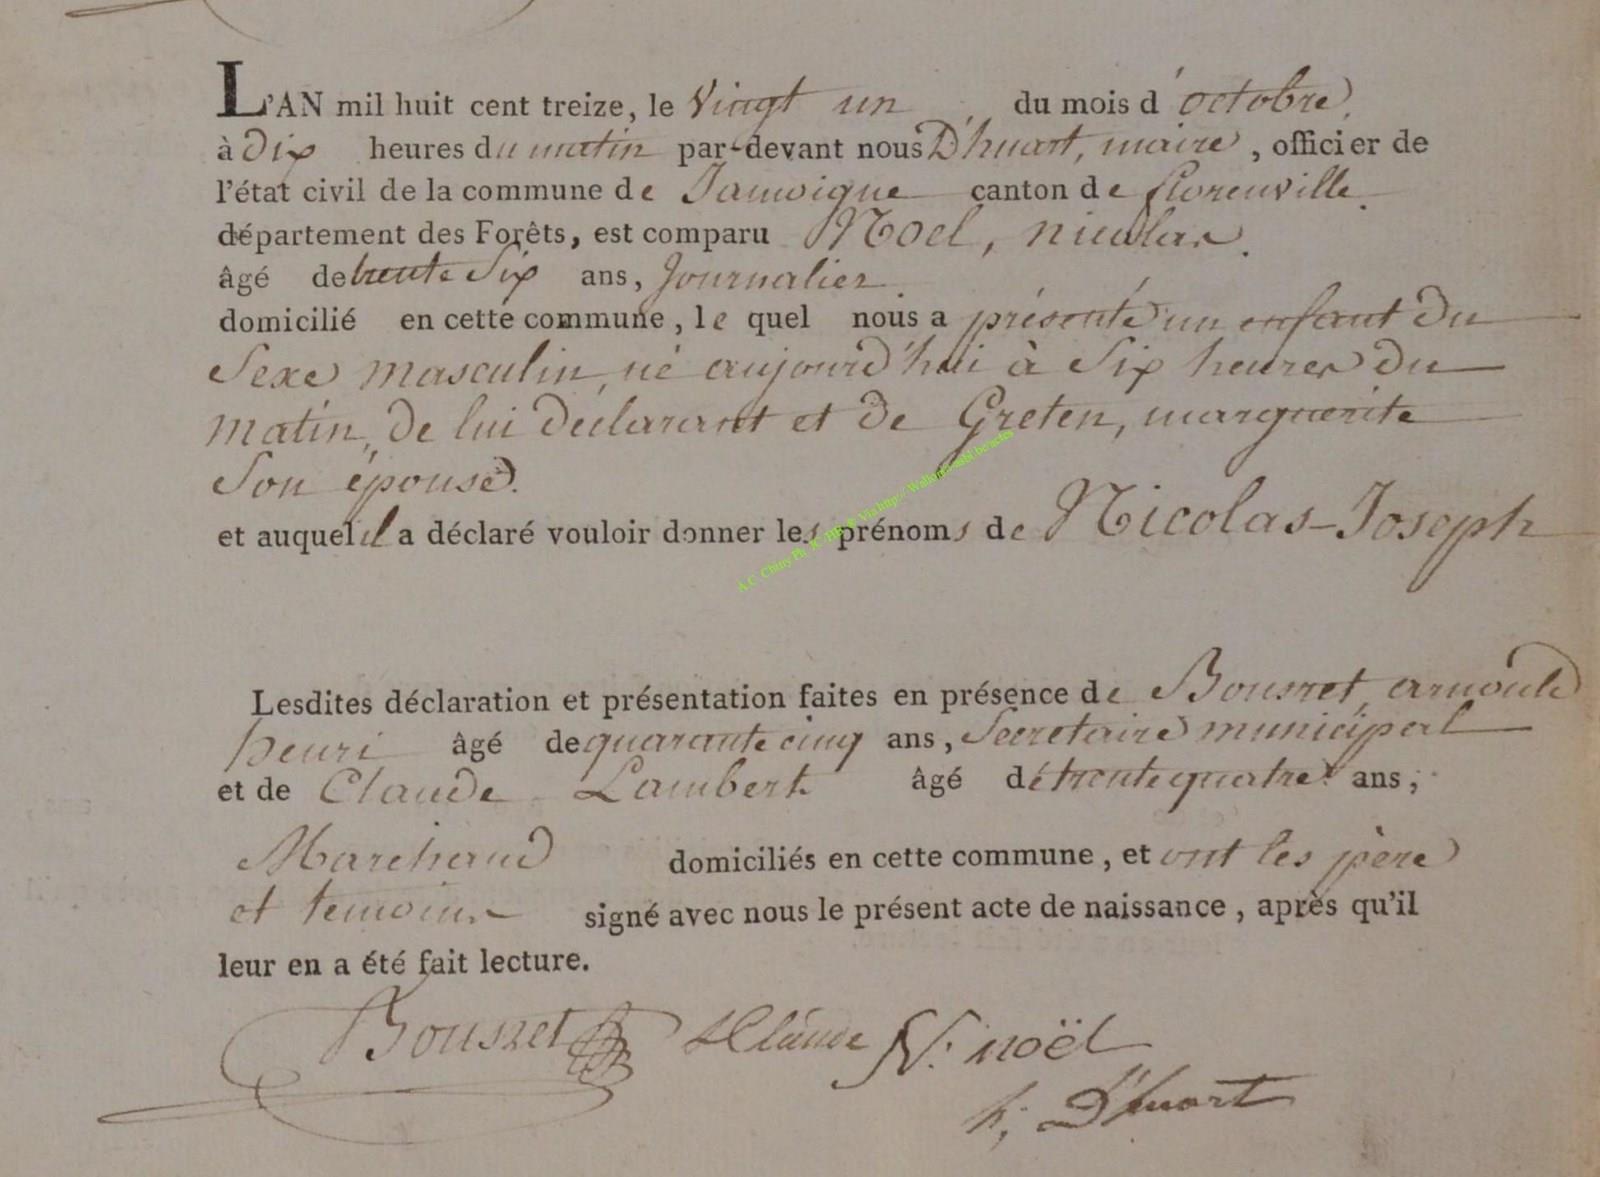 L'AN mil huit cent treize, le Vingt un du mois d'octobre,
à Dix heures du matin par-devant nous D'huart, maire, officier de
l'état civil de la commune de Jamoigne canton de florenville
département des Forêts, est comparu Noel, nicolas.
âgé de trente Six ans, Journalier.
domicilié en cette commune, le quel nous a présenté un enfant Du
Sexe masculin, né aujourd'hui à Six heures Du
matin, De lui Déclarant et de Greten, marguerite
Son épouse.
et auquel il a déclaré vouloir donner les prénoms de Nicolas-Joseph
A.C. Chiny Ph. JC HB & Via http://Wallonia-asbl.be/actes
Lesdites déclaration et présentation faites en présence de Bousret, arnould
henri âgé de quarante cinq ans, Secretaire municipal
et de Claude Lambert âgé de trente quatre ans,
Marchand domiciliés en cette commune, et ont les père
et temoins signé avec nous le présent acte de naissance, après qu'il
leur en a été fait lecture.
Bousret LClaude N. noël
h, D'huart